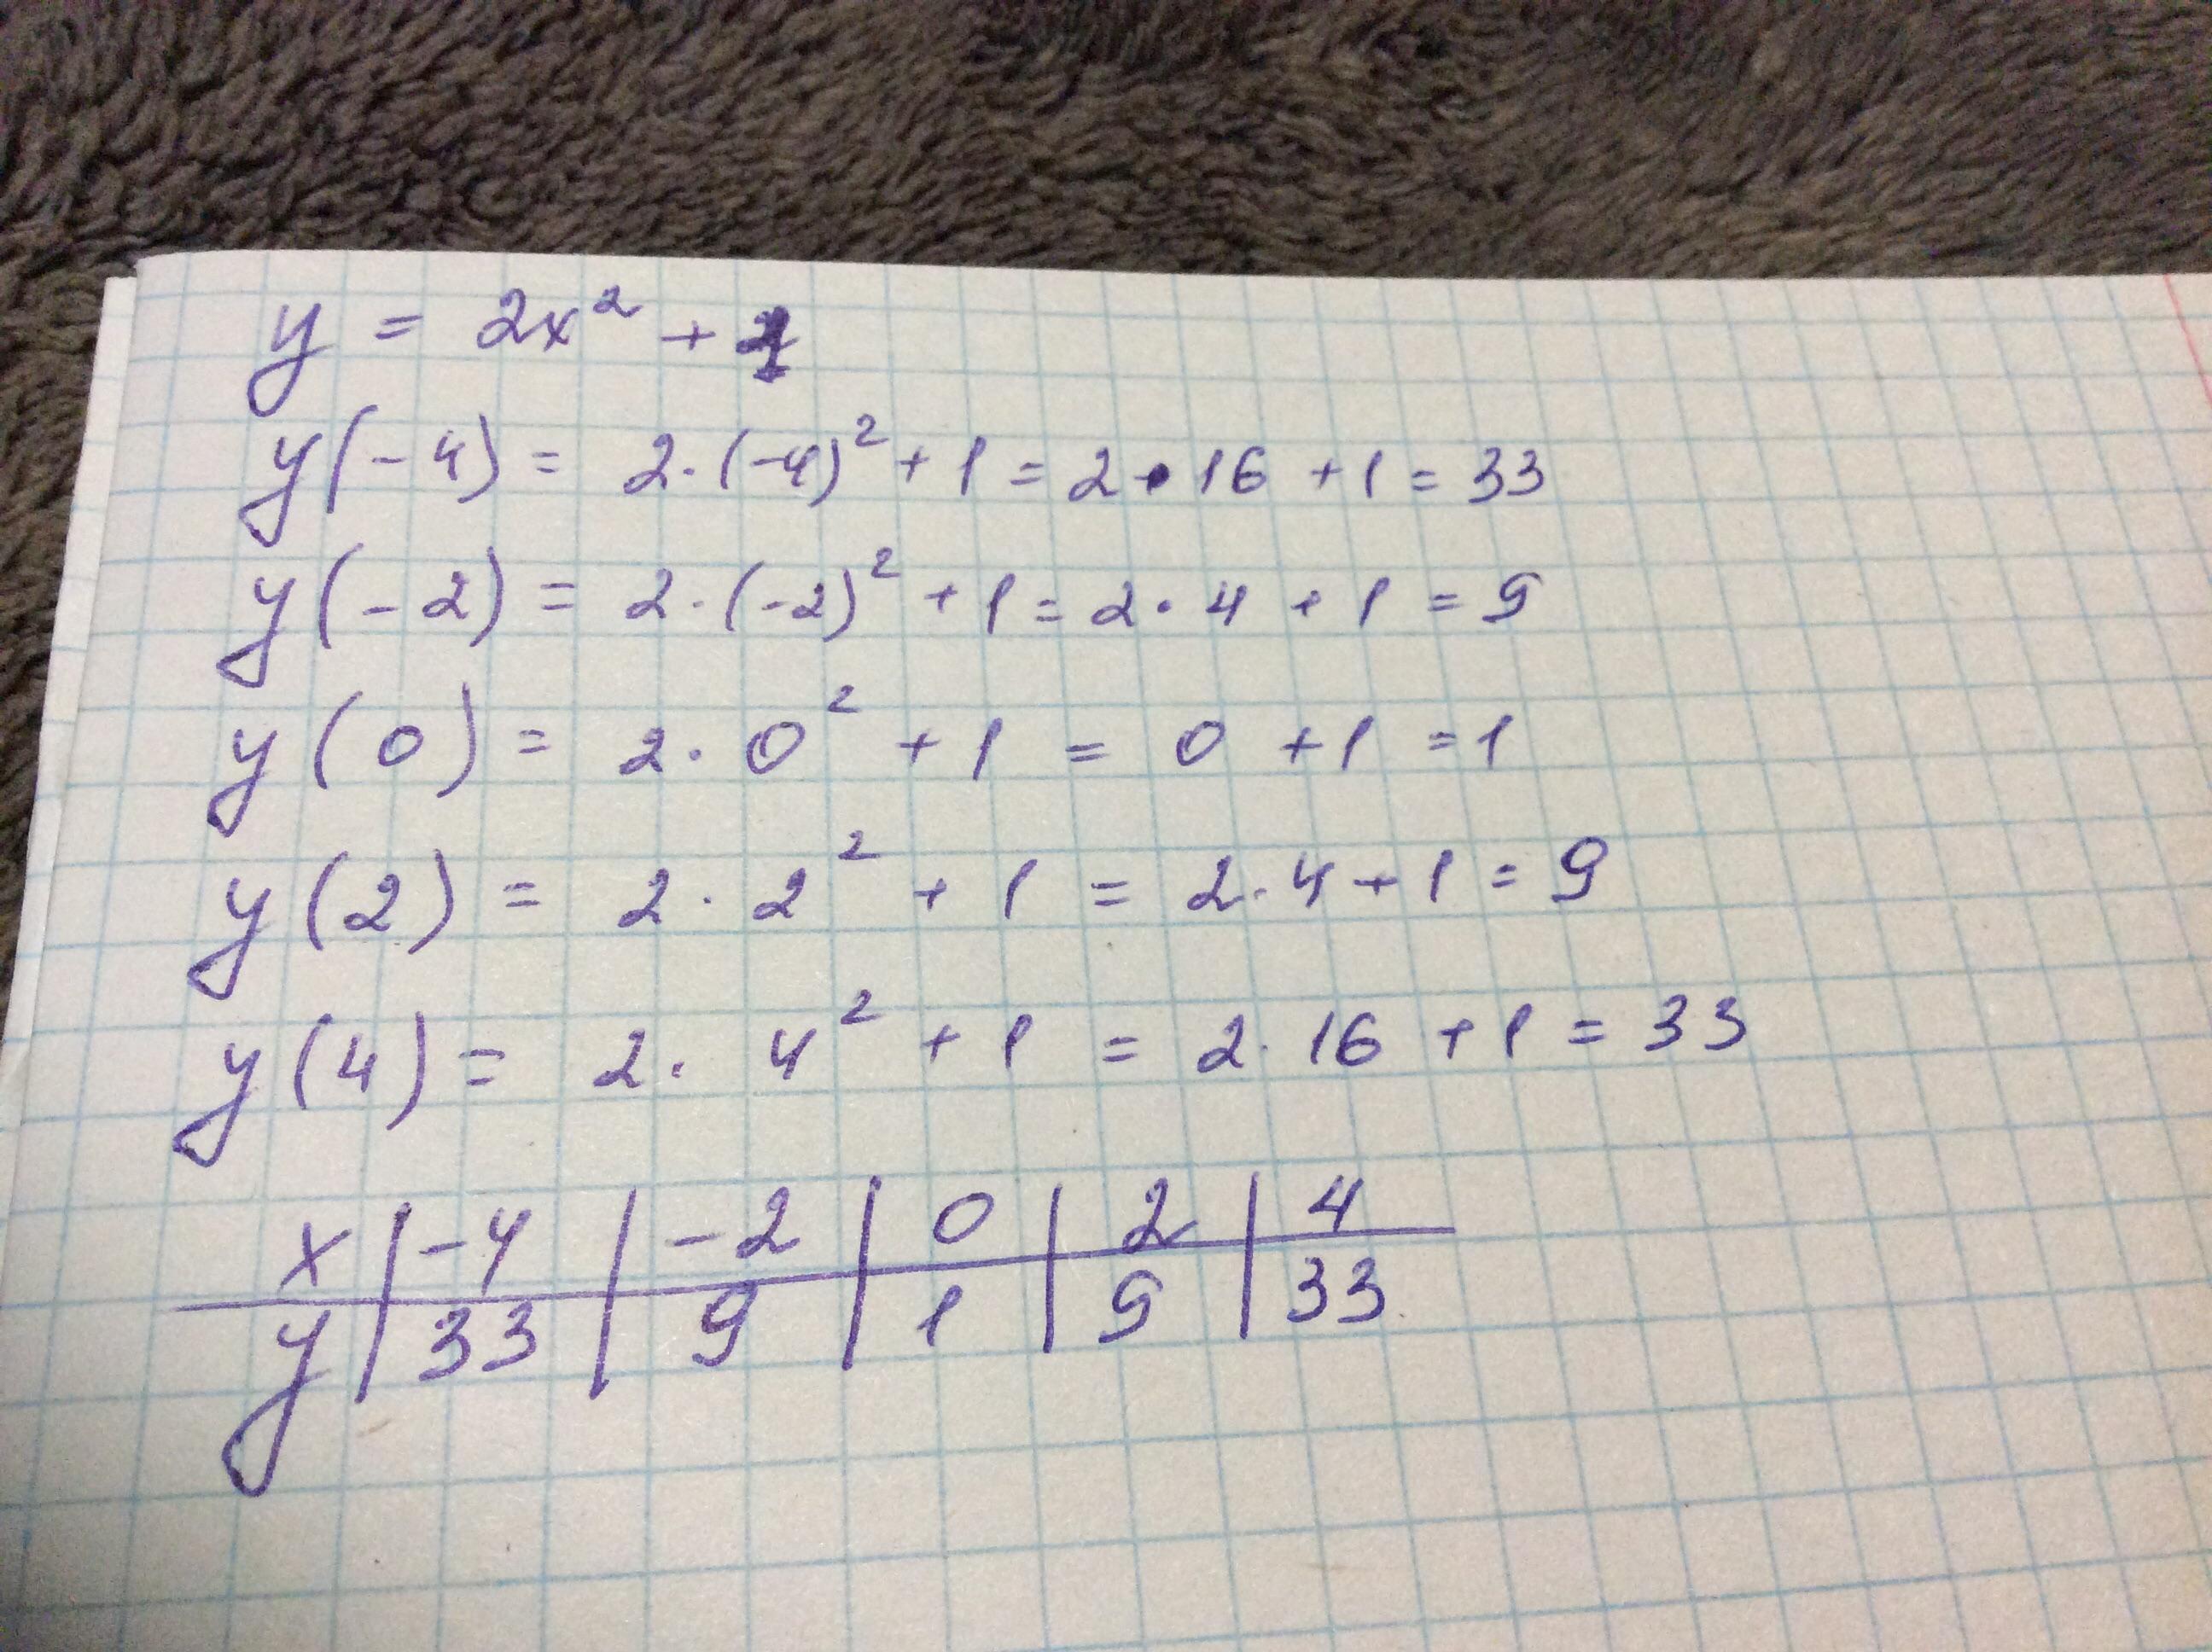 y = 2x² + 1
y(-4) = 2·(-4)² + 1 = 2·16 + 1 = 33
y(-2) = 2·(-2)² + 1 = 2·4 + 1 = 9
y(0) = 2·0² + 1 = 0 + 1 = 1
y(2) = 2·2² + 1 = 2·4 + 1 = 9
y(4) = 2·4² + 1 = 2·16 + 1 = 33
x | -4 | -2 | 0 | 2 | 4
y | 33 | 9 | 1 | 9 | 33